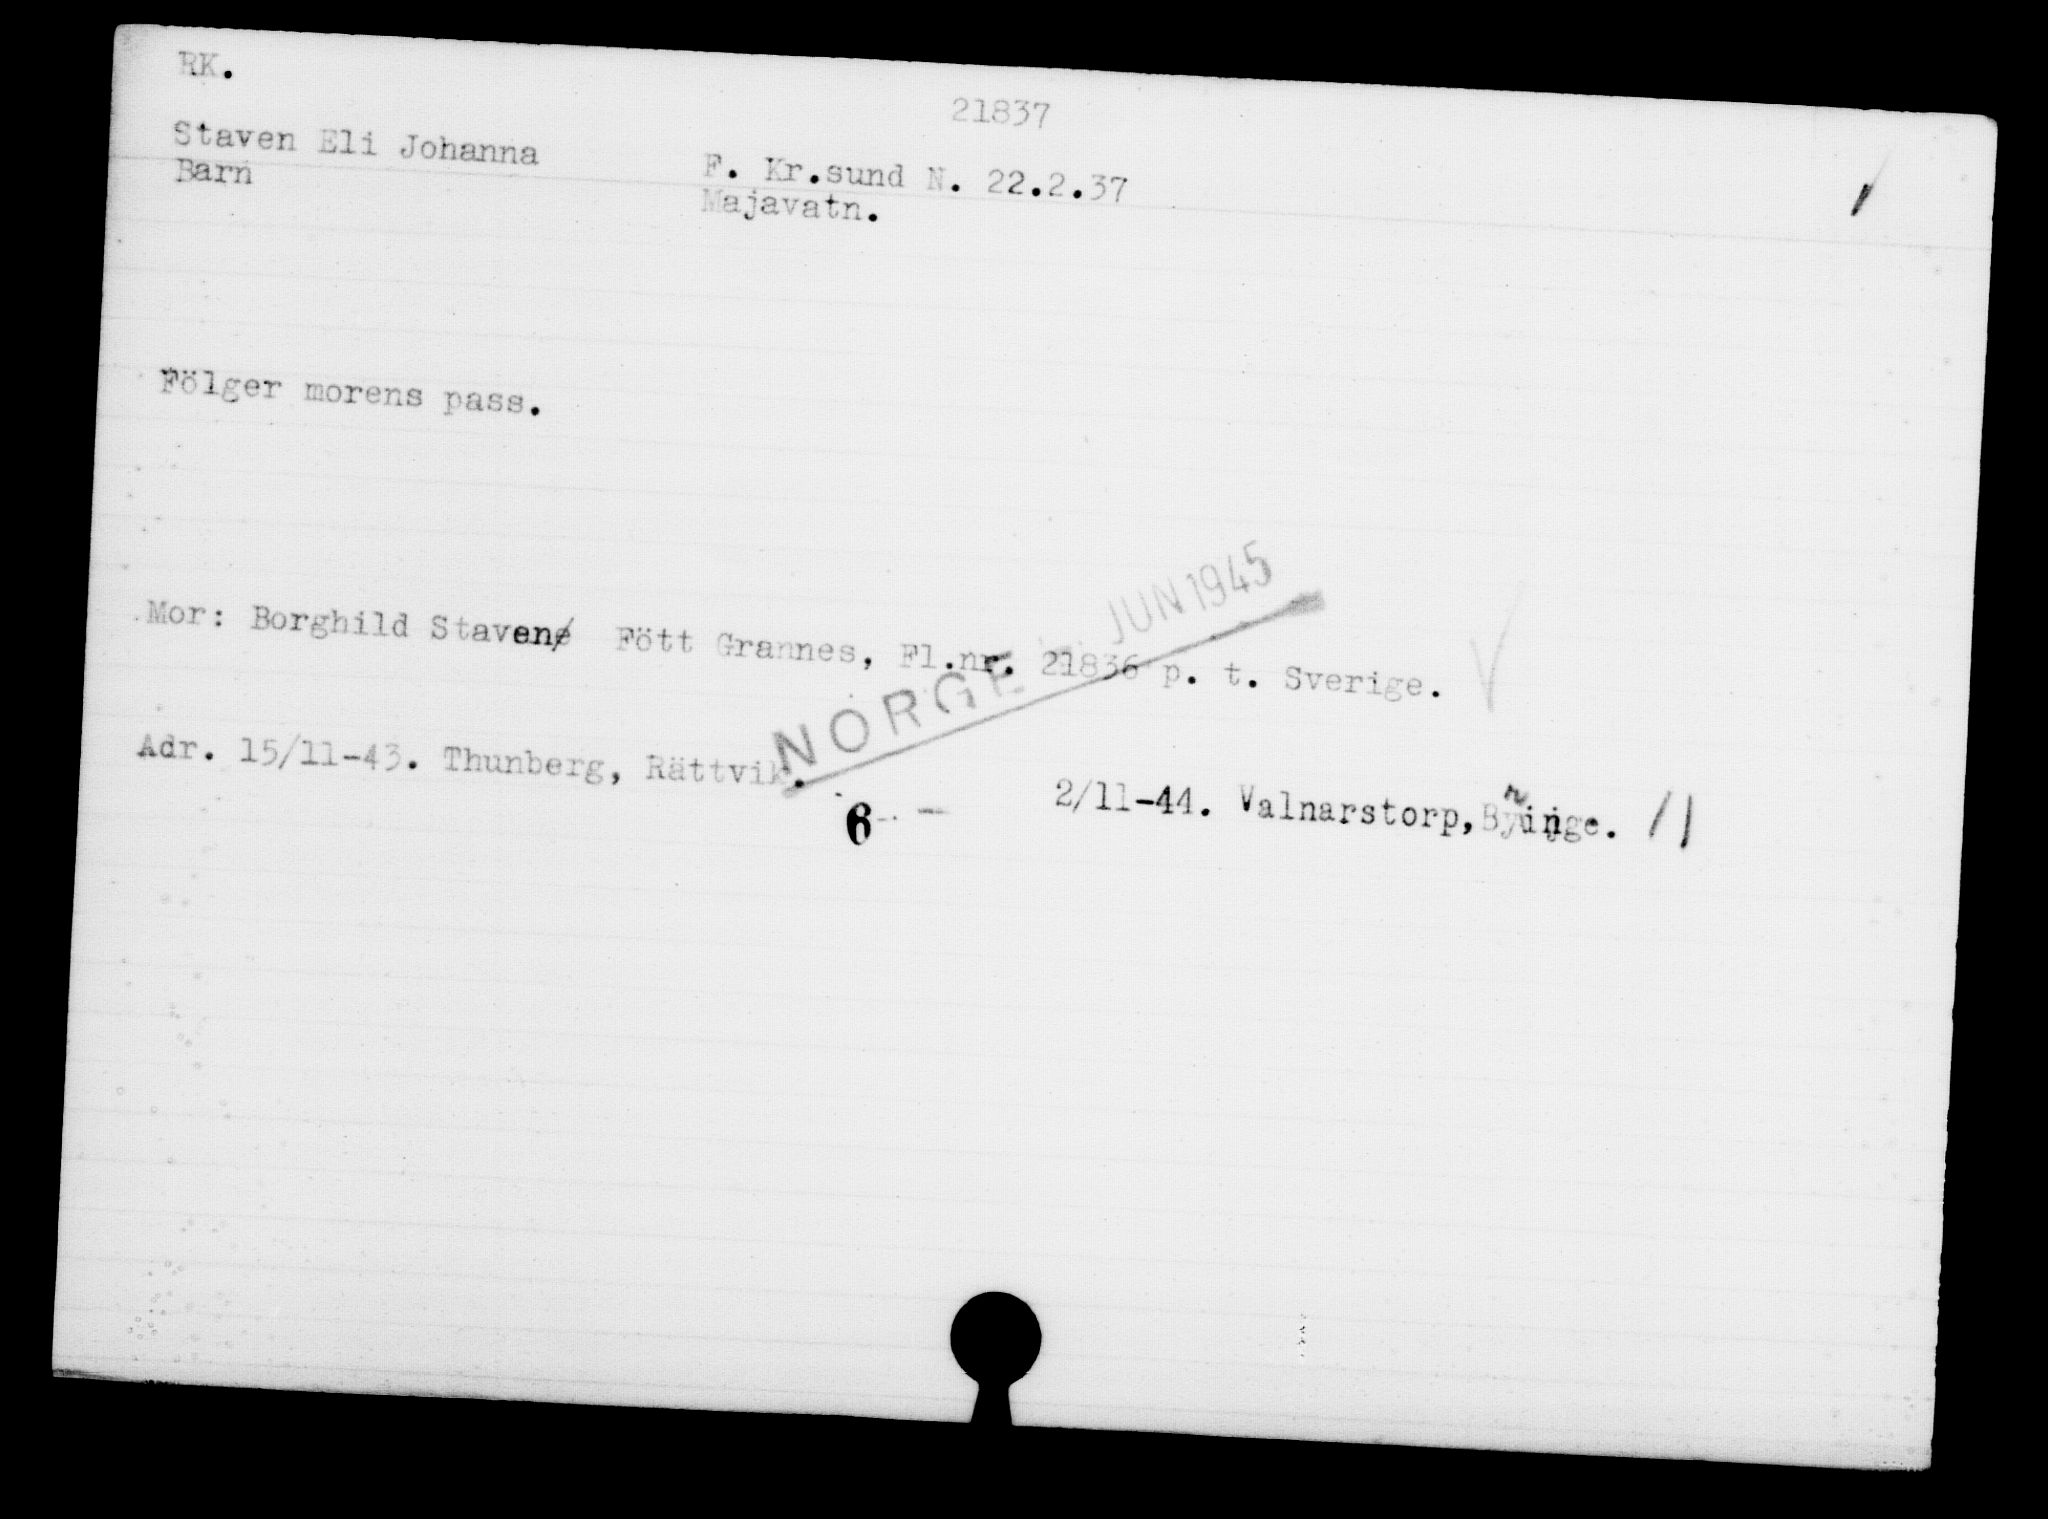 RK.
21837
Staven Eli Johanna
F. Kr.sund N. 22.2.37
Barn
Majavatn.
Fölger morens pass.
JUN 1945
Mor: Borghild Staven Fött Grannes, Fl.nr. 21836 p. t. Sverige.
NORGE
Adr. 15/11-43. Thunberg, Rättvik.
6
2/11-44. Valnarstorp,